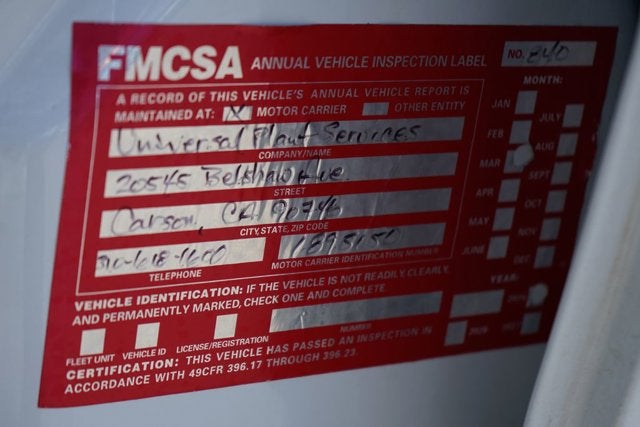 FMCSA ANNUAL VEHICLE INSPECTION LABEL NO. 840
A RECORD OF THIS VEHICLE'S ANNUAL VEHICLE REPORT IS
MAINTAINED AT: X MOTOR CARRIER OTHER ENTITY
Universal Plant Services
COMPANY/NAME
20545 Belshaw Ave
STREET
Carson, CA. 90746
CITY, STATE, ZIP CODE
310-618-1600 1895150
TELEPHONE MOTOR CARRIER IDENTIFICATION NUMBER
VEHICLE IDENTIFICATION: IF THE VEHICLE IS NOT READILY, CLEARLY,
AND PERMANENTLY MARKED, CHECK ONE AND COMPLETE.
NUMBER
FLEET UNIT VEHICLE ID LICENSE/REGISTRATION
CERTIFICATION: THIS VEHICLE HAS PASSED AN INSPECTION IN
ACCORDANCE WITH 49CFR 396.17 THROUGH 396.23.
MONTH:
JAN JULY
FEB AUG
MAR SEPT
APR OCT
MAY NOV
JUNE DEC
YEAR: